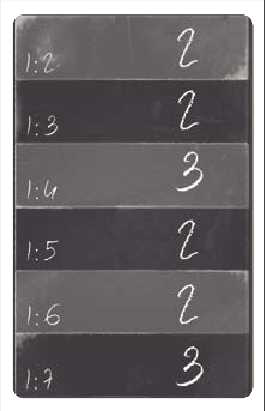 1:2 2
1:3 2
1:4 3
1:5 2
1:6 2
1:7 3